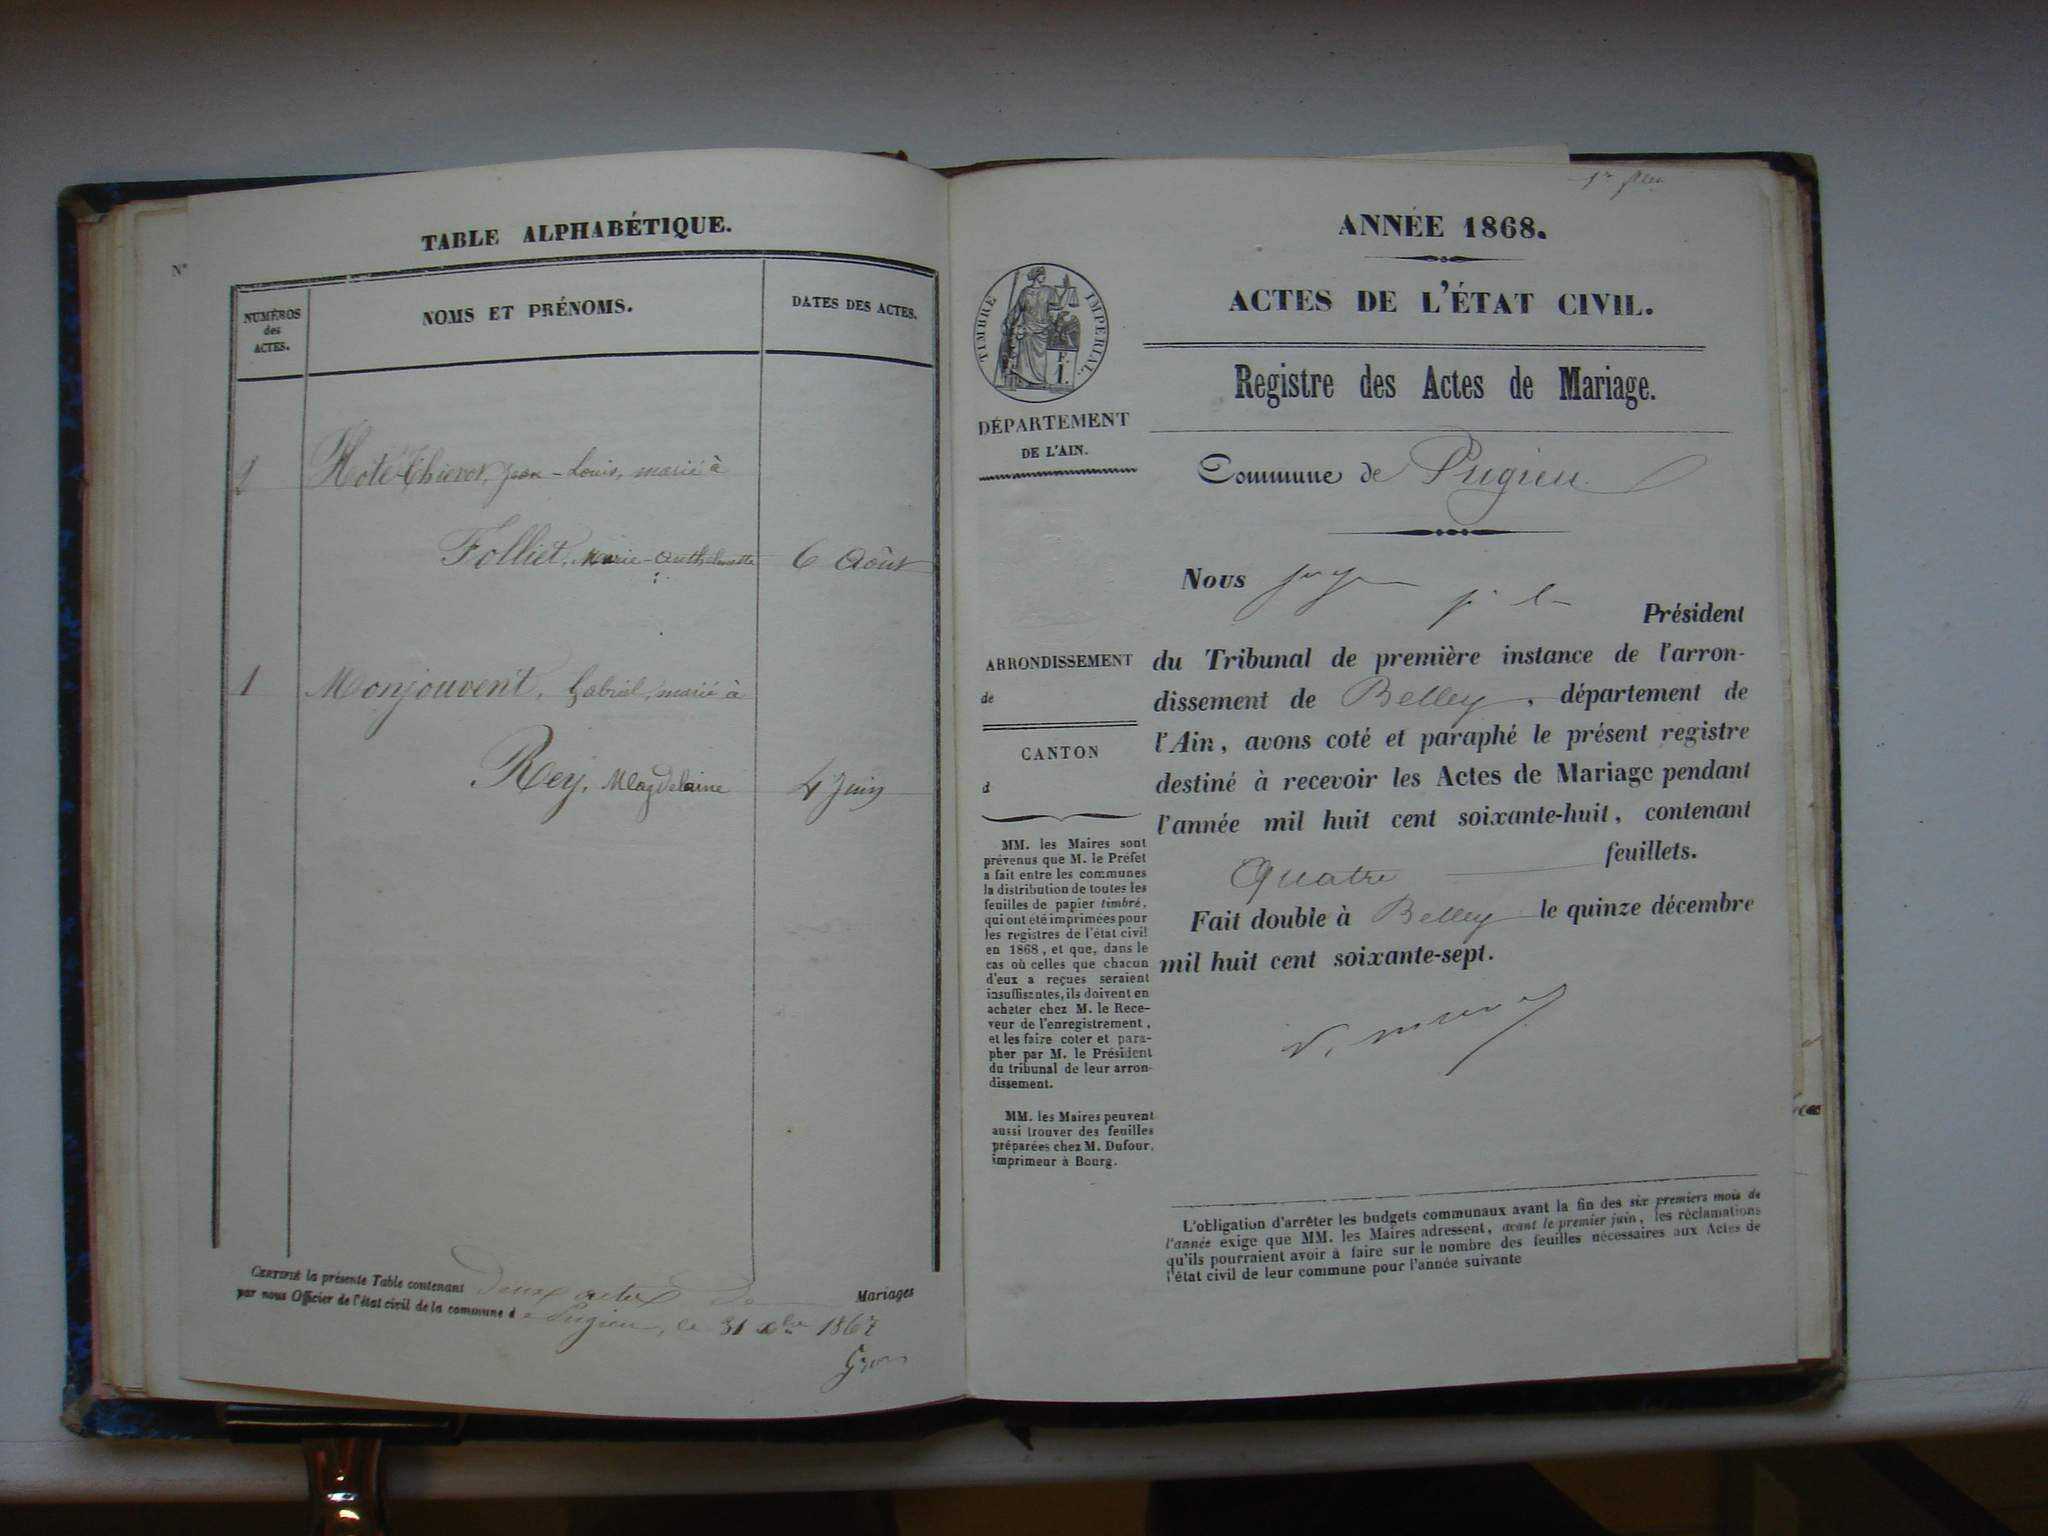 TABLE ALPHABÉTIQUE.
N°
NUMÉROS
des
ACTES.
NOMS ET PRÉNOMS.
DATES DES ACTES.
2 Hoté Thievot, Jean-Louis, marié à
Folliet, Marie-Anthelmette 6 Août
1 Monjouvent, Gabriel, marié à
Rey, Magdelaine 4 Juin
CERTIFIÉ la présente Table contenant deux actes de Mariages
par nous Officier de l'état civil de la commune d e Pugieu, ce 31 Xbre 1867
1er
ANNÉE 1868.
ACTES DE L'ÉTAT CIVIL.
TIMBRE IMPERIAL.
F.
1.
Registre des Actes de Mariage.
DÉPARTEMENT
DE L'AIN.
Commune de Pugieu
Nous
Président
ARRONDISSEMENT
de
CANTON
d
du Tribunal de première instance de l'arron-
dissement de Belley, département de
l'Ain, avons coté et paraphé le présent registre
destiné à recevoir les Actes de Mariage pendant
l'année mil huit cent soixante-huit, contenant
Quatre feuillets.
Fait double à Belley le quinze décembre
mil huit cent soixante-sept.
MM. les Maires sont
prévenus que M. le Préfet
a fait entre les communes
la distribution de toutes les
feuilles de papier timbré,
qui ont été imprimées pour
les registres de l'état civil
en 1868, et que, dans le
cas où celles que chacun
d'eux a reçues seraient
insuffisantes, ils doivent en
acheter chez M. le Rece-
veur de l'enregistrement,
et les faire coter et para-
pher par M. le Président
du tribunal de leur arron-
dissement.
MM. les Maires peuvent
aussi trouver des feuilles
préparées chez M. Dufour,
imprimeur à Bourg.
L'obligation d'arrêter les budgets communaux avant la fin des six premiers mois de
l'année exige que MM. les Maires adressent, avant le premier juin, les réclamations
qu'ils pourraient avoir à faire sur le nombre des feuilles nécessaires aux Actes de
l'état civil de leur commune pour l'année suivante